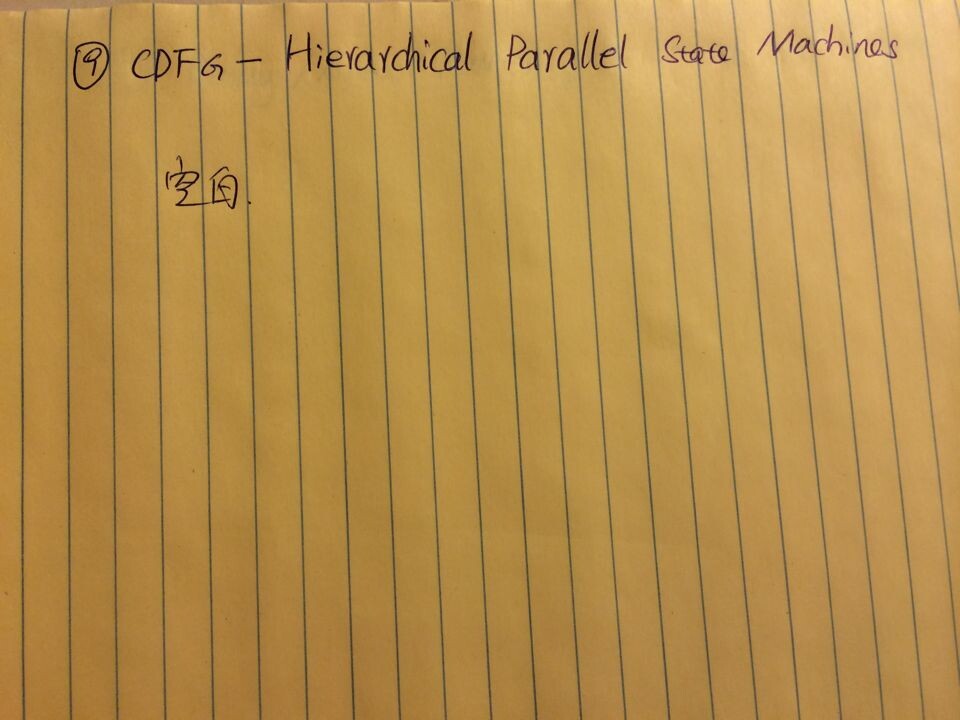 ⑨ CDFG - Hierarchical Parallel State Machines
空白.